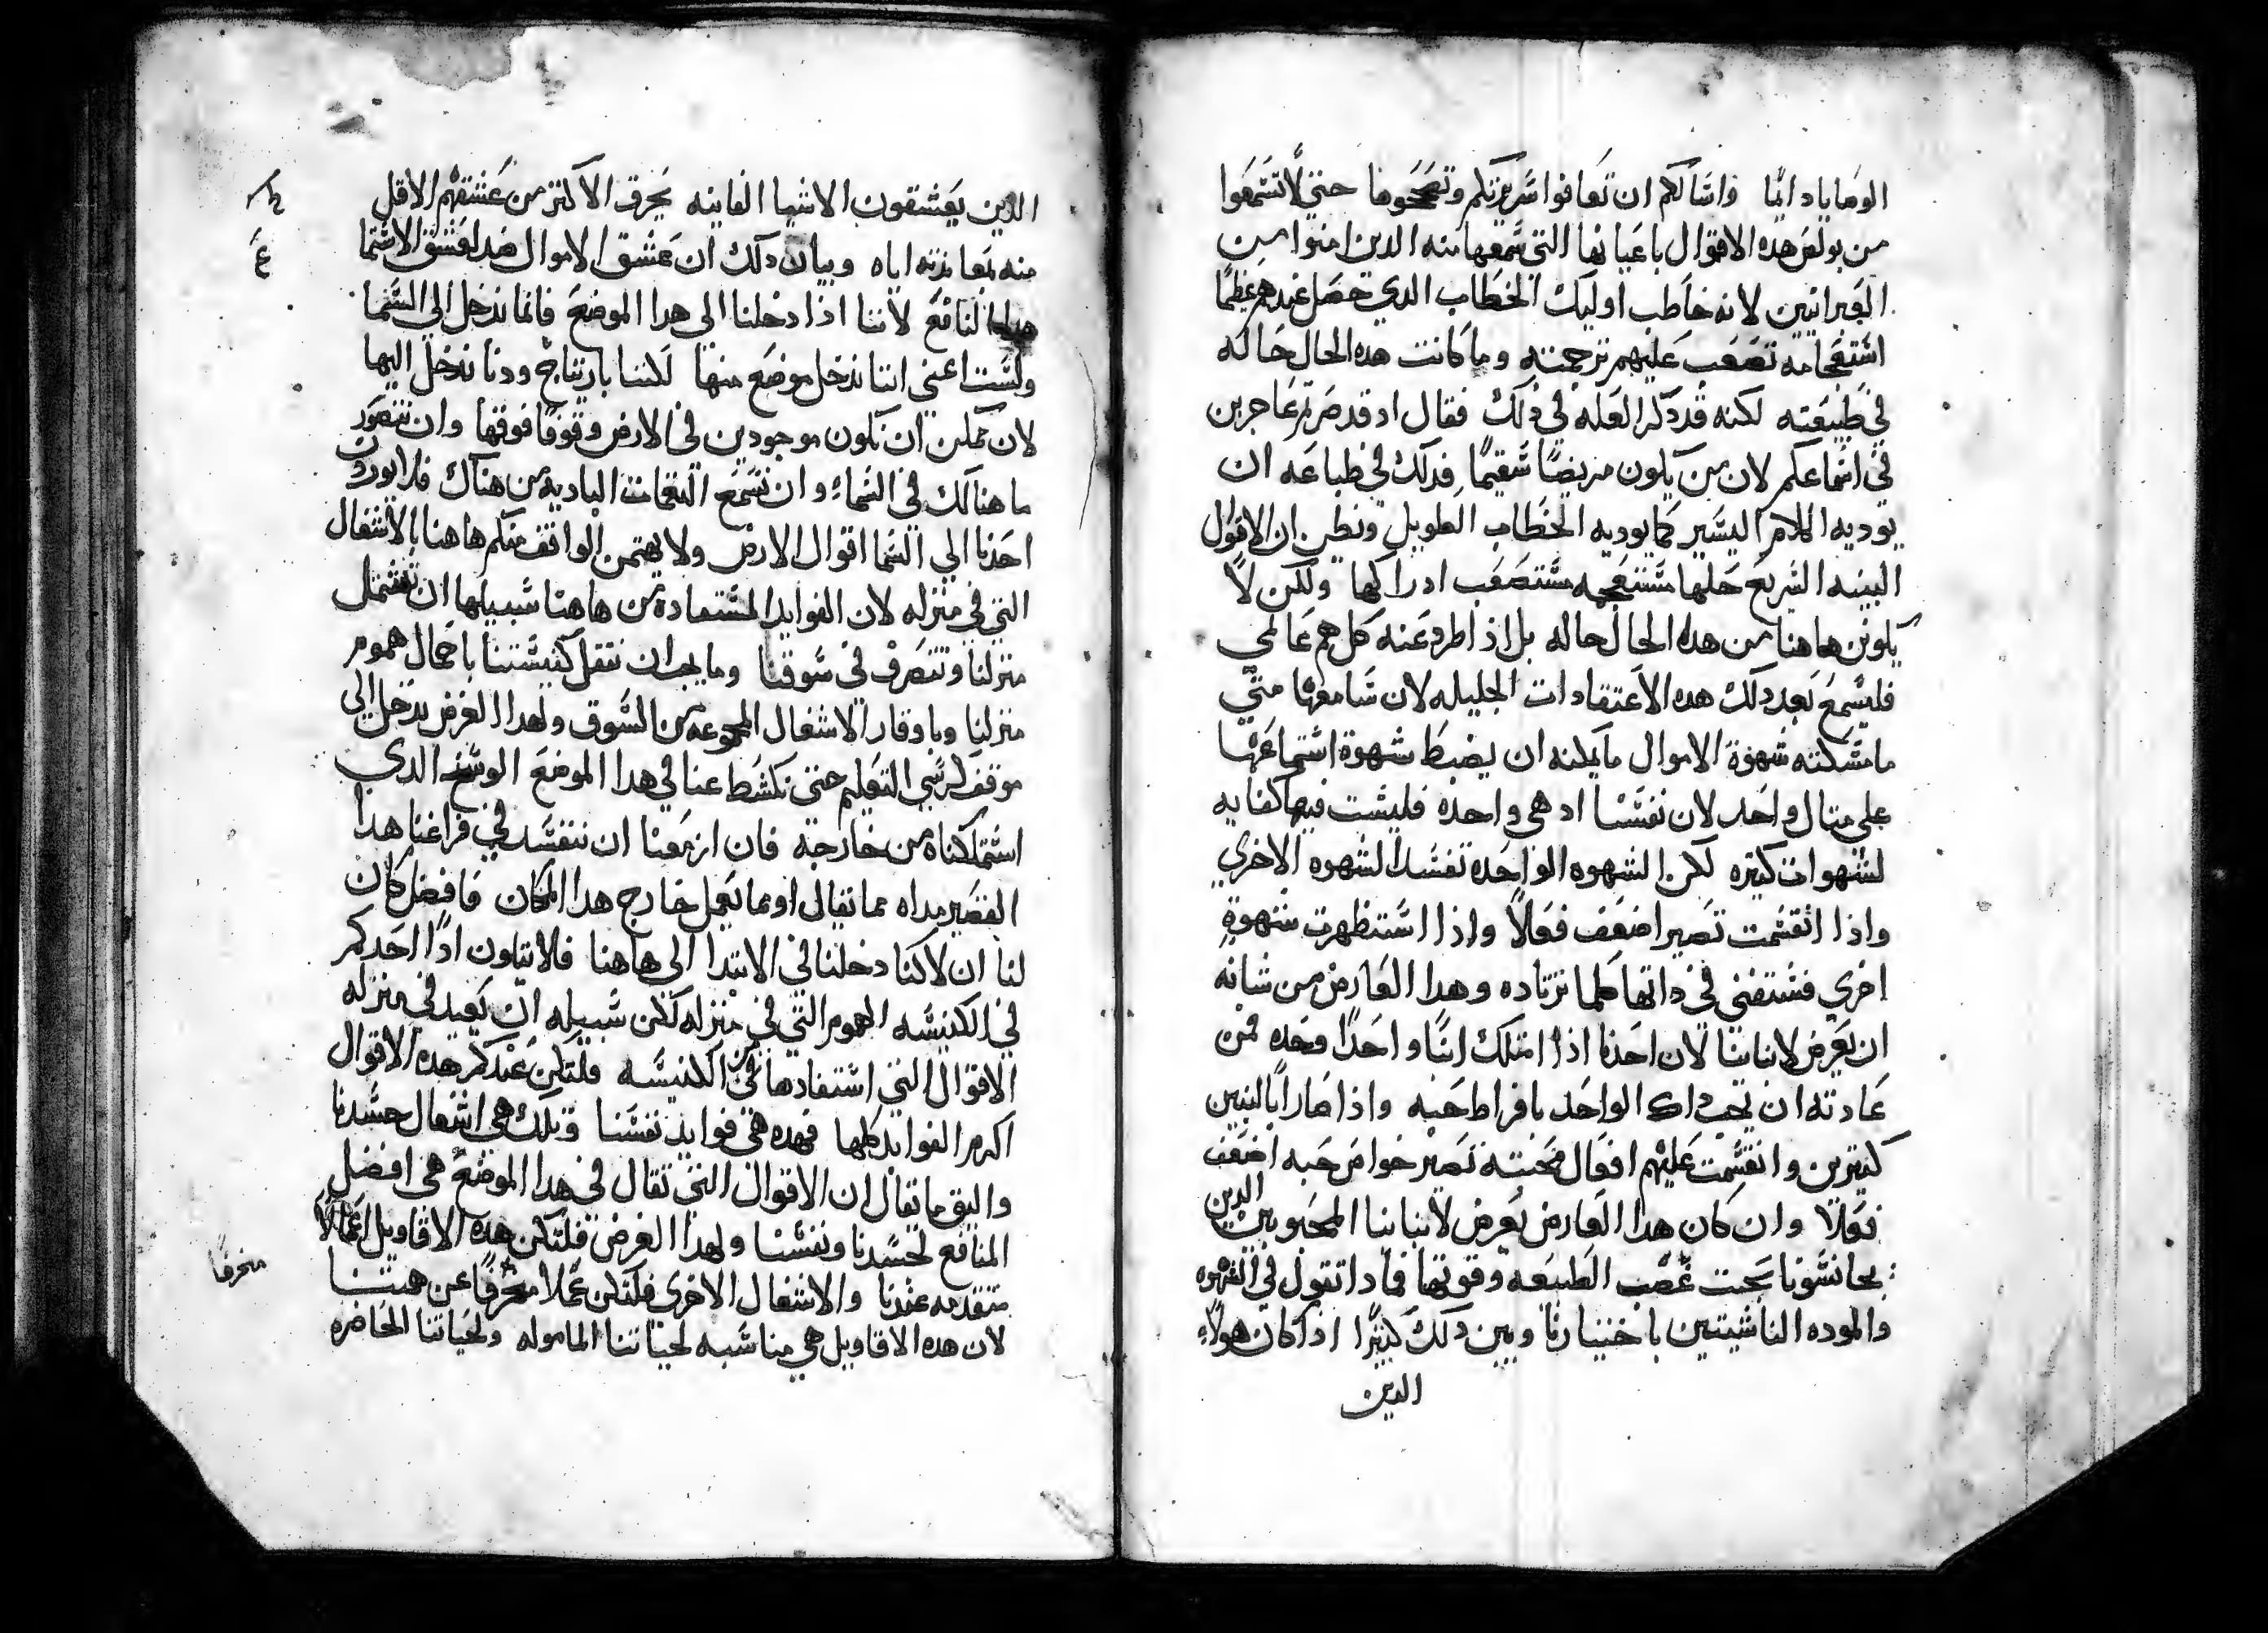 الوصايا دايمًا واسالكم ان تعافوا سريرتكم وتصححوها حتي لا تسمعوا
من بولس هده الاقوال باعيانها التي سمعها منه الدين امنوا من
العبرانيين لانه خاطب اوليك الخطاب الدي حصل عندهم عظيمًا
استعجامه تصعب عليهم ترجمته وما كانت هده الحال حاله
في طبيعته لكنه قد دكر العله في دلك فقال اد قد صرتم عاجزين
في استماعكم لان من يكون مريضًا سقيمًا فدلك في طباعه ان
يوديه الكلام اليسير كما يوديه الخطاب الطويل ونظن ان الاقوال
البينه السريع حلها مستعجمه مستصعب ادراكها ولكن لا
يكونن هاهنا من هده الحال حاله بل اذا طرد عنه كل هم عالمي
فليسمع بعد دلك هده الاعتقادات الجليله لان سامعها متي
ما مسكته شهوة الاموال ما يمكنه ان يضبط شهوة استماعها
علي مثال واحد لان نفسنا اد هي واحده فليست فيها كفايه
لشهوات كتيره لكن الشهوه الواحده تفسد الشهوه الاخري
واذا انقسمت تصير اضعف فعلاً واذا استظهرت شهوة
اخري فستفني في داتها كلما ترتاده وهدا العارض من شانه
ان يعرض لابنابنا لان احدنا اذا امتلك ابنًا واحدًا وحده فمن
عادته ان يحب داك الواحد بافراط حبه واذا صار ابًا لبنين
كتيرين وانقسمت عليهم افعال محبته تصير خواص حبه اضعف
فعلاً وان كان هدا العارض يعرض لابنابنا المحبوبين الدين
بجانسونا تحت غصب الطبيعه وقوتها فمادا تقول في الشهوه
والموده الناشيتين باختيارنا وبين دلك كبيرًا اذ كان هولاء
الدين
الدين يعشقون الاشيا الفانيه يحرق الاكتر من عشقهم الاقل
منه بمعاندته اياه وبيان دلك ان عشق الاموال ضد لعشق الاستما
لنا نع لاننا اذا دخلنا الى هدا الموضع فانما ندخل الي السما
ولست اعني اننا ندخل موضع منها لكننا بارتياح ودنا ندخل اليها
لان يمكن ان نكون موجودين في الارض وقوفًا فوقها وان نتصور
ما هنالك في السماء وان نسمع النغمات الباديه من هناك فلا يوردن
احدنا الي السما اقوال الارض ولا يهتمن الواقف منكم هاهنا بالاشغال
التي في منزله لان الفوايد المستفاده من هاهنا سبيلها ان تشتمل
منزلنا وتتصرف في سوقنا وما يجب ان نثقل كنيستنا باحمال هموم
منزلنا وباوقار الاشغال المجموعه من السوق ولهدا الغرض ندخل الي
موقف كرسي التعليم حتي نكشط عنا في هدا الموضع الوسخ الدي
استملكناه من خارجه فان ازمعنا ان نتفسد في فراغنا هدا
القصير مداه مما تقالي او مما نعمل خارج هدا المكان فافضل كان
لنا ان لا كنا دخلنا في الابتدا الى هاهنا فلا يتلون ادًا احدكم
في الكنيسه الهموم التي في منزله لكن سبيله ان يعيد في منزله
الاقوال التي استفادها من الكنيسه فلتكن عندكم هده الاقوال
اكرم الفوايد كلها فهده هي فوايد نفسنا وتلك هي اشغال جسدنا
واليق ما تقال ان الاقوال التي تقال في هدا الموضع هي افضل
المنافع لجسدنا ونفسنا ولهدا الغرض فلتكن هده الاقاويل اعمالاً
متقدمه عندنا والاشغال الاخري فلتكن عملاً منحرفًا عن همتنا
منحرفًا
لان هده الاقاويل هي مناسبه لحياتنا الماموله ولحياتنا الحاضره